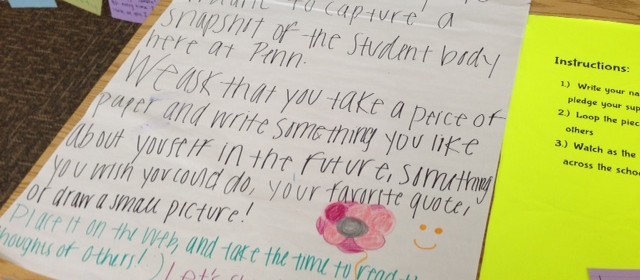 to capture a
snapshot of the student body
here at Penn.
We ask that you take a peice of
paper and write something you like
about yourself in the future, something
you wish you could do, your favorite quote,
or draw a small picture!
Place it on the web, and take the time to read the
thoughts of others!) Let's
Instructions:
1.) Write your na
pledge your sup
2.) Loop the piec
others
3.) Watch as the
across the schoo